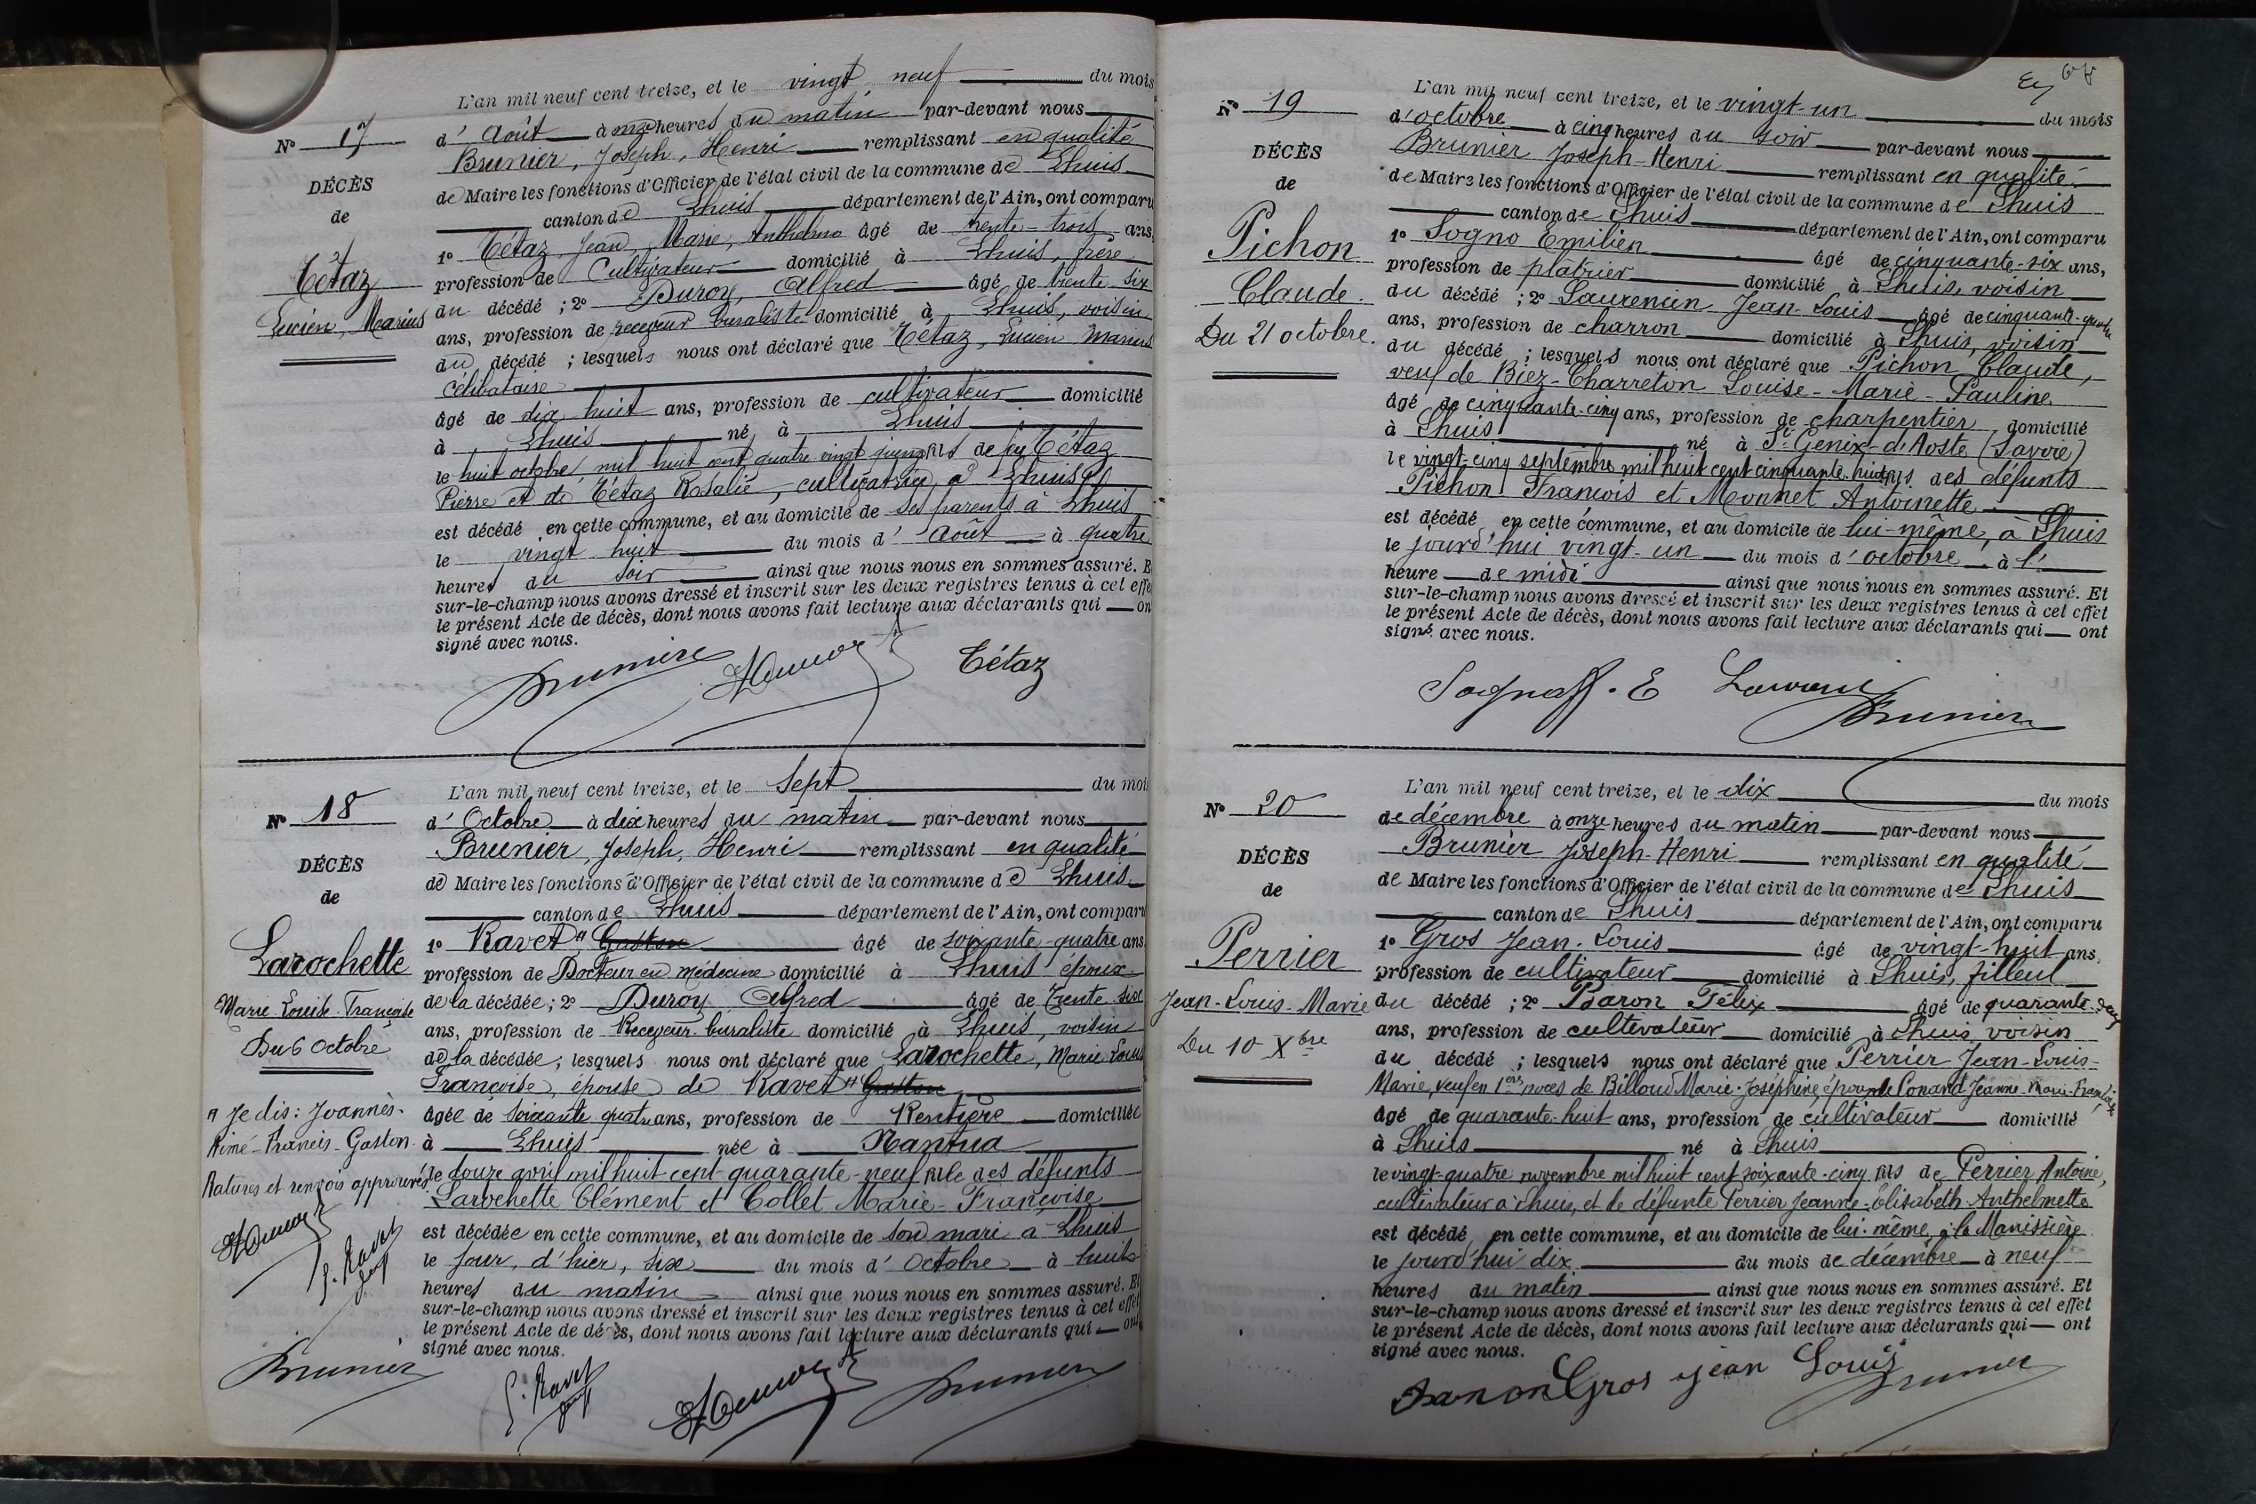 L'an mil neuf cent treize, et le vingt neuf du mois
N° 17 d'Août à onze heures du matin par-devant nous
Brunier, Joseph, Henri remplissant en qualité
DÉCÈS de Maire les fonctions d'Officier de l'état civil de la commune de Lhuis
de canton de Lhuis département de l'Ain, ont comparu
1° Tétaz, Jean, Marie, Anthelme âgé de trente-trois ans,
Tétaz profession de Cultivateur domicilié à Lhuis, frère
Lucien, Marius du décédé ; 2° Duroy, Alfred âgé de trente six
ans, profession de receveur buraliste domicilié à Lhuis, voisin
du décédé ; lesquels nous ont déclaré que Tétaz, Lucien Marius
Célibataire
âgé de dix huit ans, profession de cultivateur domicilié
à Lhuis né à Lhuis
le huit octobre mil huit cent quatre vingt quinze fils de feu Tétaz
Pierre et de Tétaz Rosalie, cultivatrice à Lhuis
est décédé en cette commune, et au domicile de ses parents à Lhuis
le vingt huit du mois d'Août à quatre
heures du soir ainsi que nous nous en sommes assuré. E
sur-le-champ nous avons dressé et inscrit sur les deux registres tenus à cet effe
le présent Acte de décès, dont nous avons fait lecture aux déclarants qui on
signé avec nous.
Brunier ADuroy Tétaz
L'an mil neuf cent treize, et le Sept du moi
N° 18 d'Octobre à dix heures du matin par-devant nous
Brunier, Joseph, Henri remplissant en qualité
DÉCÈS de Maire les fonctions d'Officier de l'état civil de la commune de Lhuis
de canton de Lhuis département de l'Ain, ont comparu
1° Ravet # Gaston âgé de soixante-quatre ans
Larochette profession de Docteur en médecine domicilié à Lhuis époux
Marie Louise Françoise de la décédée ; 2° Duroy Alfred âgé de Trente six
Du 6 Octobre ans, profession de Receveur-buraliste domicilié à Lhuis, voisin
de la décédée ; lesquels nous ont déclaré que Larochette, Marie Louise
Françoise, épouse de Ravet # Gaston
# Je dis : Joannès- âgée de Soixante quatre ans, profession de Rentière domiciliée
Aimé-Francis-Gaston. à Lhuis née à Nantua
Ratures et renvois approuvés le douze avril mil huit-cent-quarante-neuf fille des défunts
Larochette Clément et Collet Marie-Françoise
ADuroy est décédée en cette commune, et au domicile de son mari à Lhuis
G. Ravet le jour, d'hier, six du mois d'Octobre à huit
heures du matin ainsi que nous nous en sommes assuré. Et
sur-le-champ nous avons dressé et inscrit sur les deux registres tenus à cet effet
le présent Acte de décès, dont nous avons fait lecture aux déclarants qui ont
signé avec nous.
Brunier G. Ravet ADuroy Brunier
L'an mil neuf cent treize, et le vingt-un du mois
N° 19 d'octobre à cinq heures du soir par-devant nous
Brunier Joseph-Henri remplissant en qualité
DÉCÈS de Maire les fonctions d'Officier de l'état civil de la commune de Lhuis
de canton de Lhuis département de l'Ain, ont comparu
1° Sogno Emilien âgé de cinquante-six ans,
Pichon profession de plâtrier domicilié à Lhuis, voisin
Claude. du décédé ; 2° Laurencin Jean-Louis âgé de cinquante-quatre
Du 21 octobre. ans, profession de charron domicilié à Lhuis, voisin
du décédé ; lesquels nous ont déclaré que Pichon Claude,
veuf de Biez-Charreton Louise-Marie-Pauline.
âgé de cinquante-cinq ans, profession de charpentier domicilié
à Lhuis né à St Genix-d'Aoste (Savoie)
le vingt-cinq septembre mil huit cent cinquante-huit fils des défunts
Pichon François et Monnet Antoinette
est décédé en cette commune, et au domicile de lui-même, à Lhuis
le jourd'hui vingt-un du mois d'octobre à l'
heure de midi ainsi que nous nous en sommes assuré. Et
sur-le-champ nous avons dressé et inscrit sur les deux registres tenus à cet effet
le présent Acte de décès, dont nous avons fait lecture aux déclarants qui ont
signé avec nous.
Brunier
L'an mil neuf cent treize, et le dix du mois
N° 20 de décembre à onze heures du matin par-devant nous
Brunier Joseph-Henri remplissant en qualité
DÉCÈS de Maire les fonctions d'Officier de l'état civil de la commune de Lhuis
de canton de Lhuis département de l'Ain, ont comparu
1° Gros Jean-Louis âgé de vingt-huit ans,
Perrier profession de cultivateur domicilié à Lhuis, filleul
Jean-Louis-Marie du décédé ; 2° Baron Félix âgé de quarante-deux
Du 10 Xbre ans, profession de cultivateur domicilié à Lhuis, voisin
du décédé ; lesquels nous ont déclaré que Perrier Jean-Louis-
Marie, veuf en 1ères noces de Billoud Marie-Joséphine, époux de Conand Jeanne-Marie-Françoise
âgé de quarante-huit ans, profession de cultivateur domicilié
à Lhuis né à Lhuis
le vingt-quatre novembre mil huit cent soixante-cinq fils de Perrier Antoine,
cultivateur à Lhuis, et de défunte Perrier Jeanne-Elisabeth-Anthelmette
est décédé en cette commune, et au domicile de lui-même, à la Manissière
le jourd'hui dix du mois de décembre à neuf
heures du matin ainsi que nous nous en sommes assuré. Et
sur-le-champ nous avons dressé et inscrit sur les deux registres tenus à cet effet
le présent Acte de décès, dont nous avons fait lecture aux déclarants qui ont
signé avec nous.
Baron Gros Jean Louis Brunier